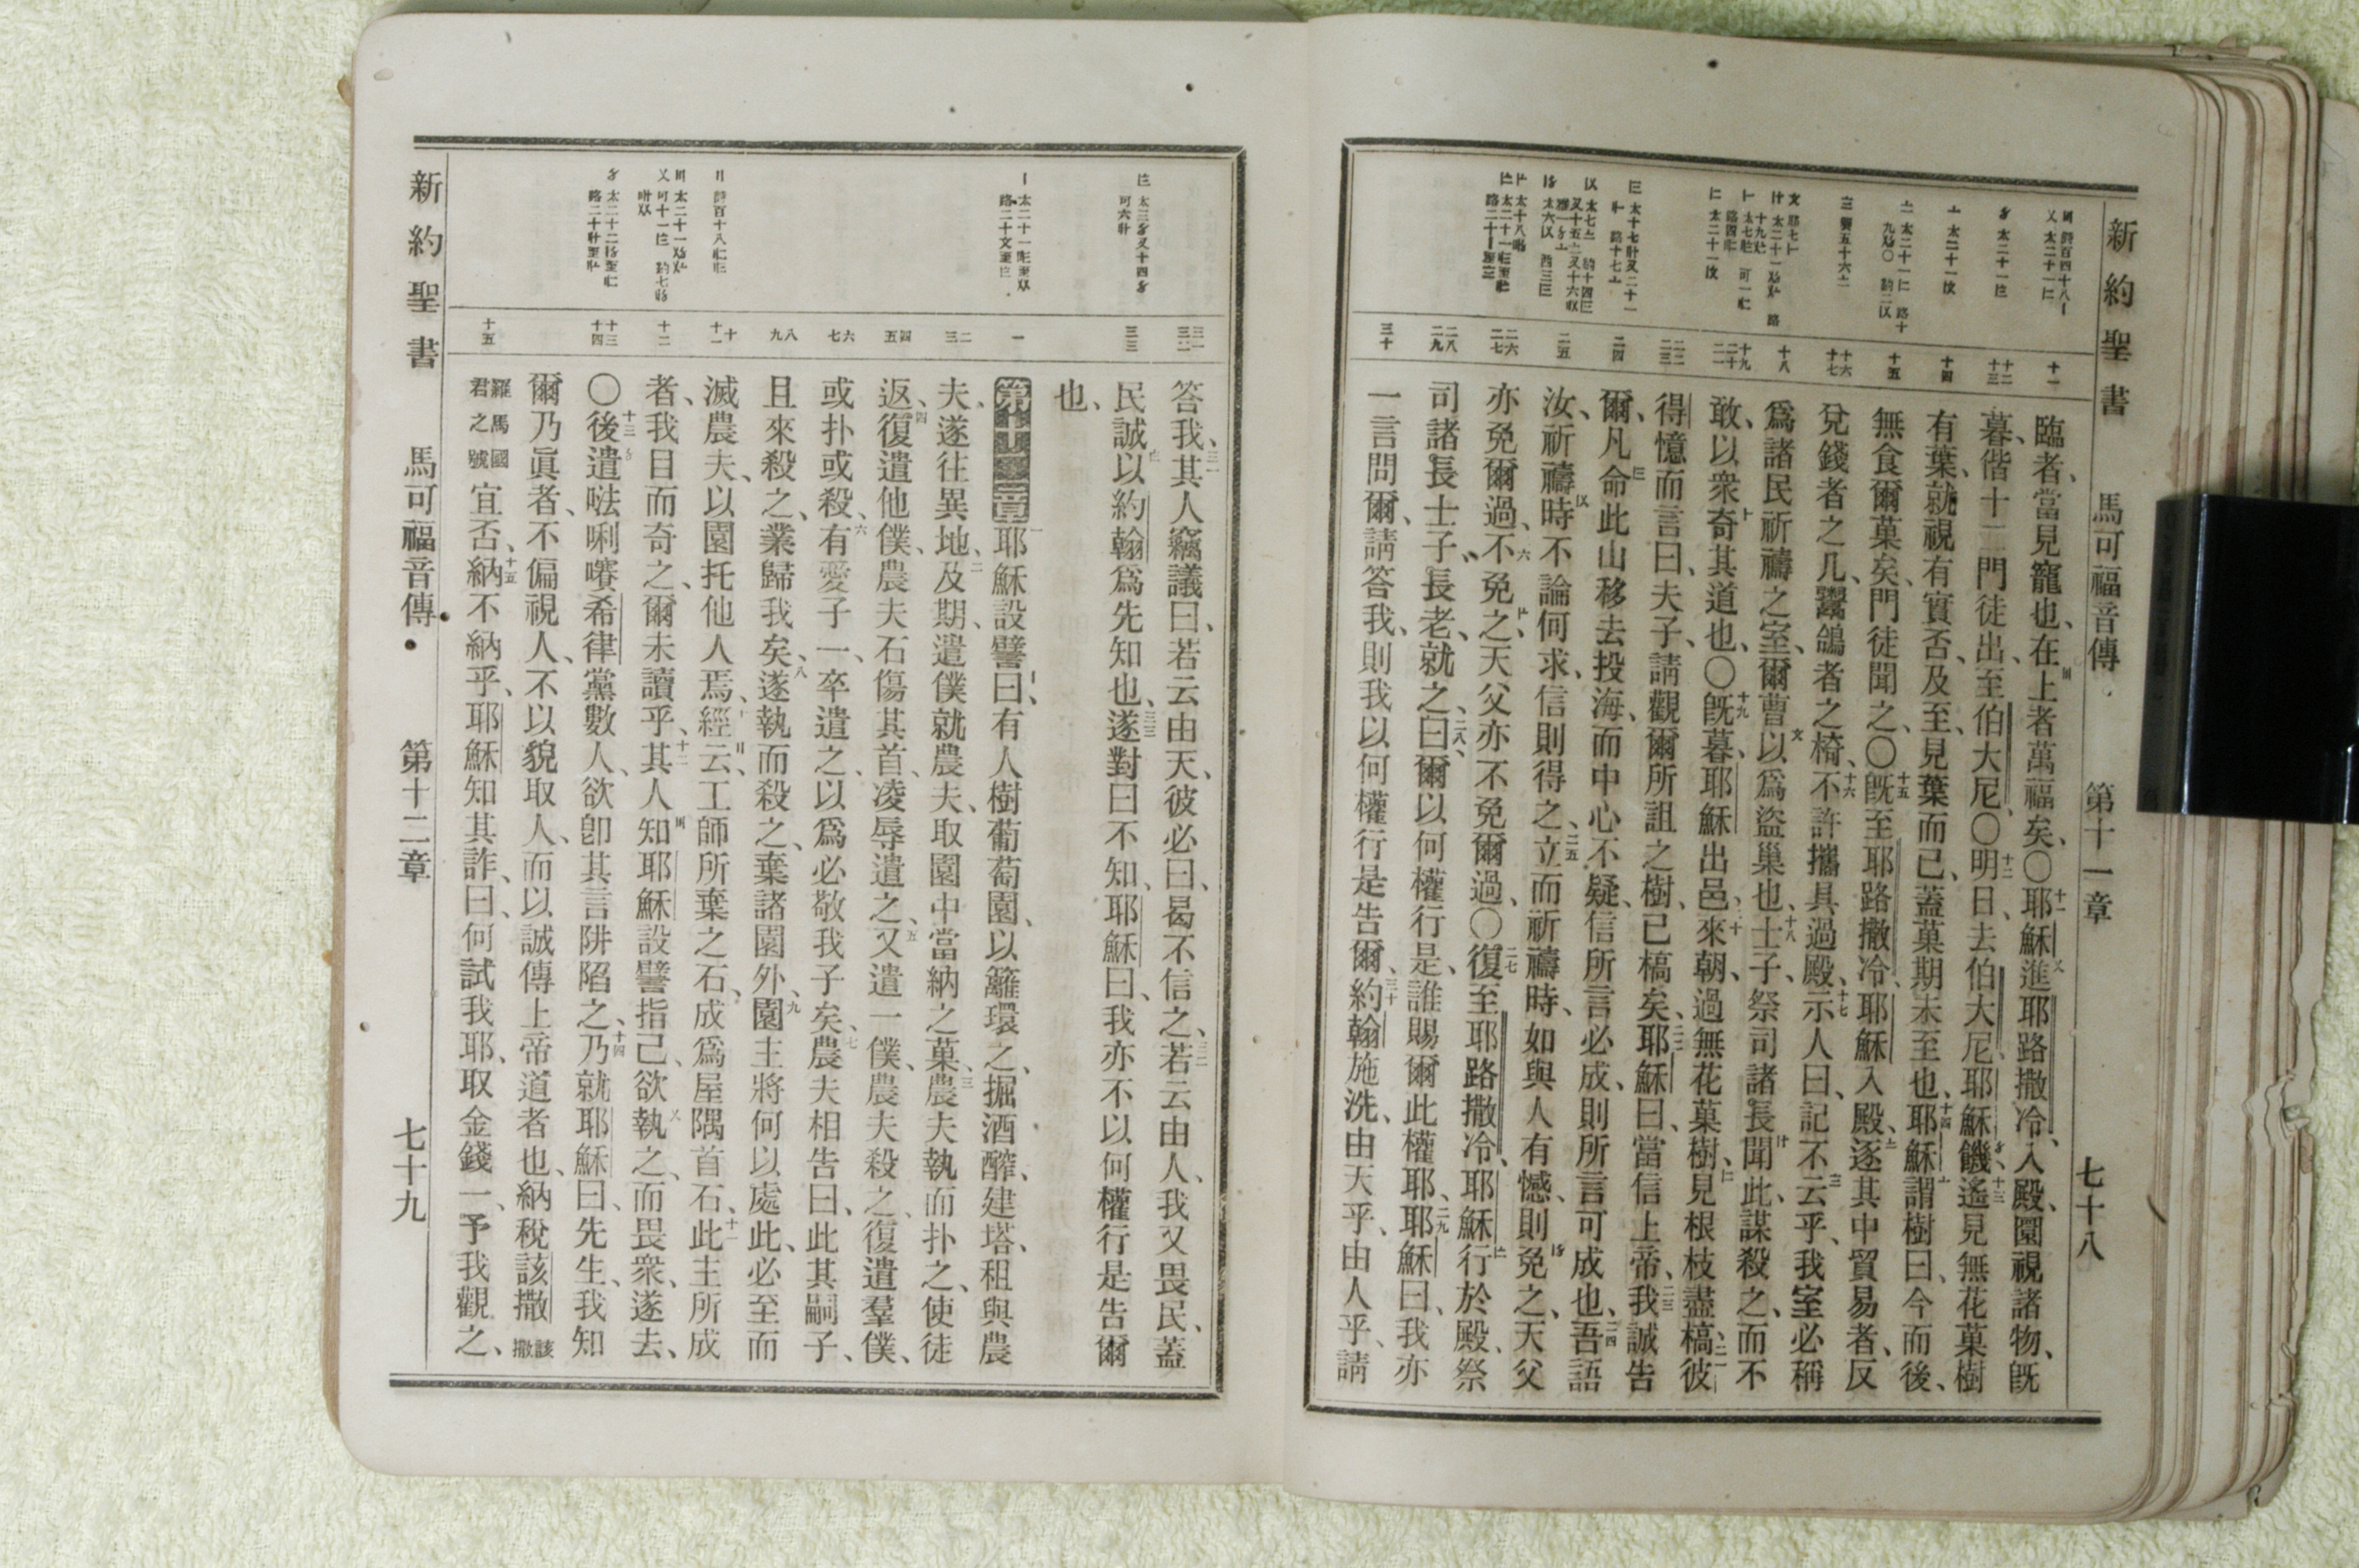 新約聖書 馬可福音傳 第十一章 七十八
臨者、當見寵也、在上者萬福矣、〇耶穌進耶路撒冷、入殿、圜視諸物、旣
暮、偕十二門徒出、至伯大尼、〇明日、去伯大尼、耶穌饑、遙見無花菓樹
有葉、就視有實否、及至、見葉而已、蓋菓期未至也、耶穌謂樹曰、今而後、
無食爾菓矣、門徒聞之、〇旣至耶路撒冷、耶穌入殿、逐其中貿易者、反
兌錢者之几、鬻鴿者之椅、不許攜具過殿、示人曰、記不云乎、我室必稱
爲諸民祈禱之室、爾曹以爲盜巢也、士子、祭司諸長聞此、謀殺之、而不
敢、以衆奇其道也、〇旣暮、耶穌出邑、來朝、過無花菓樹、見根枝盡槁、彼
得憶而言曰、夫子、請觀爾所詛之樹、已槁矣、耶穌曰、當信上帝、我誠告
爾、凡命此山移去投海、而中心不疑、信所言必成、則所言可成也、吾語
汝、祈禱時不論何求、信則得之、立而祈禱時、如與人有憾、則免之、天父
亦免爾過、不免之、天父亦不免爾過、〇復至耶路撒冷、耶穌行於殿、祭
司諸長士子、長老、就之、曰、爾以何權行是、誰賜爾此權耶、耶穌曰、我亦
一言問爾、請答我、則我以何權行是告爾、約翰施洗、由天乎、由人乎、請
答我、其人竊議曰、若云由天、彼必曰、曷不信之、若云由人、我又畏民、蓋
民誠以約翰爲先知也、遂對曰不知、耶穌曰、我亦不以何權行是告爾
也、
第十二章耶穌設譬曰、有人樹葡萄園、以籬環之、掘酒醡、建塔、租與農
夫、遂往異地、及期、遣僕就農夫、取園中當納之菓、農夫執而扑之、使徒
返、復遣他僕、農夫石傷其首、凌辱遣之、又遣一僕、農夫殺之、復遣羣僕、
或扑或殺、有愛子一、卒遣之、以爲必敬我子矣、農夫相告曰、此其嗣子、
且來殺之、業歸我矣、遂執而殺之、棄諸園外、園主將何以處此、必至而
滅農夫、以園托他人焉、經云、工師所棄之石、成爲屋隅首石、此主所成
者、我目而奇之、爾未讀乎、其人知耶穌設譬指己、欲執之、而畏衆、遂去、
〇後遣𠵽唎㘔希律黨數人、欲卽其言阱陷之、乃就耶穌曰、先生、我知
爾乃眞者、不偏視人、不以貌取人、而以誠傳上帝道者也、納稅該撒 該撒
羅馬國君之號 宜否、納不納乎、耶穌知其詐、曰、何試我耶、取金錢一、予我觀之、
新約聖書 馬可福音傳 第十二章 七十九